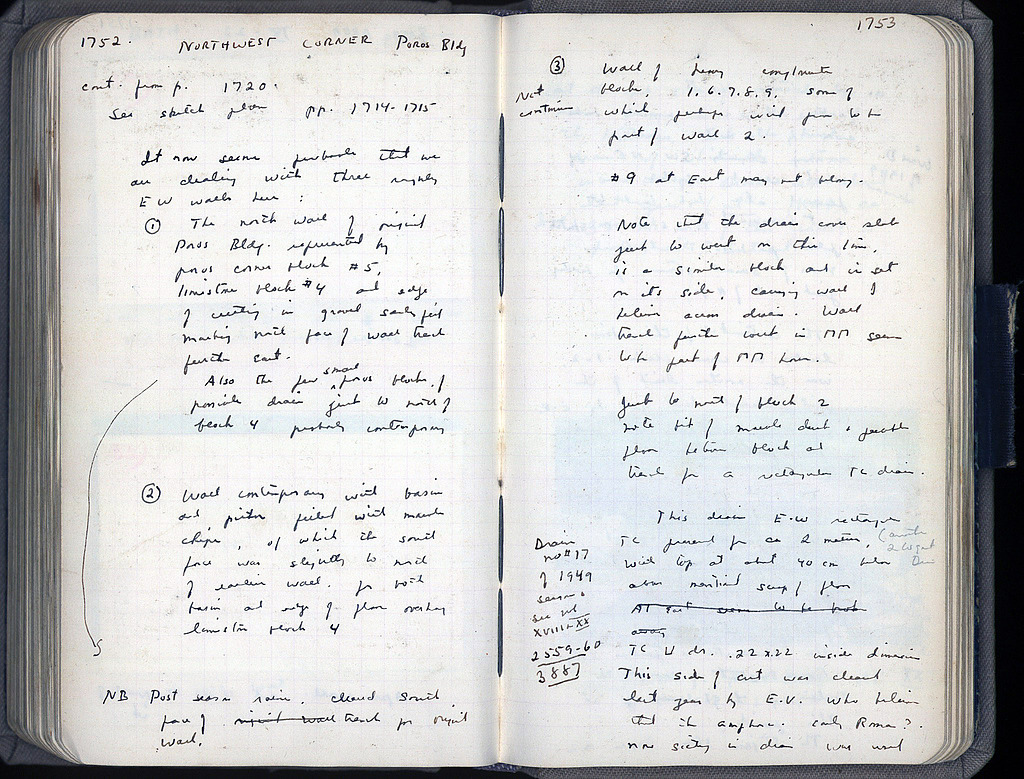 1752. NORTHWEST CORNER POROS Bldg
cont. from p. 1720.
See sketch plan pp. 1714-1715
It now seems probable that we
are dealing with three roughly
E W walls here :
① The north wall of original
Poros Bldg. represented by
poros corner block #5,
limestone block #4 and edge
of cutting in gravel sandy
marking north face of wall trench
further east.
Also the few small poros blocks of
possible drain just to north of
block 4 probably contemporary
② Wall contemporary with basin
and pithos filled with marble
chips, of which the south
face was slightly to north
of earlier wall, for both
basin and edge of floor overlay
limestone block 4
NB Post season rains. cleaned south
face of original wall trench for original
wall.
1753
③ Wall of heavy conglomerate
blocks, 1, 6, 7, 8, 9, some of
Not
continuous
which perhaps to be
part of wall 2.
#9 at East may not belong.
Note that the drain cover slab
just to west on this line,
is a similar block and is set
on its side, carrying wall of
across drain. Wall
trench further west in MM seems
to be part of MM house.
Just to north of block 2
note bit of marble dust & possible
floor between block and
trench for a rectangular TC drain.
This drain E-W rectangular
TC preserved for ca 2 meters,
with top at about 40 cm below
above mentioned scrap of floor
At east seems to be broken
away
Drain
no #17
of 1949
season
see vol
XVIII-XX
2559-60
3887
TC W dr. .22 x .22 inside dimension
This side of cut was cleaned
last year by E.V. who believes
that the amphora early Roman?
now sitting in drain was used